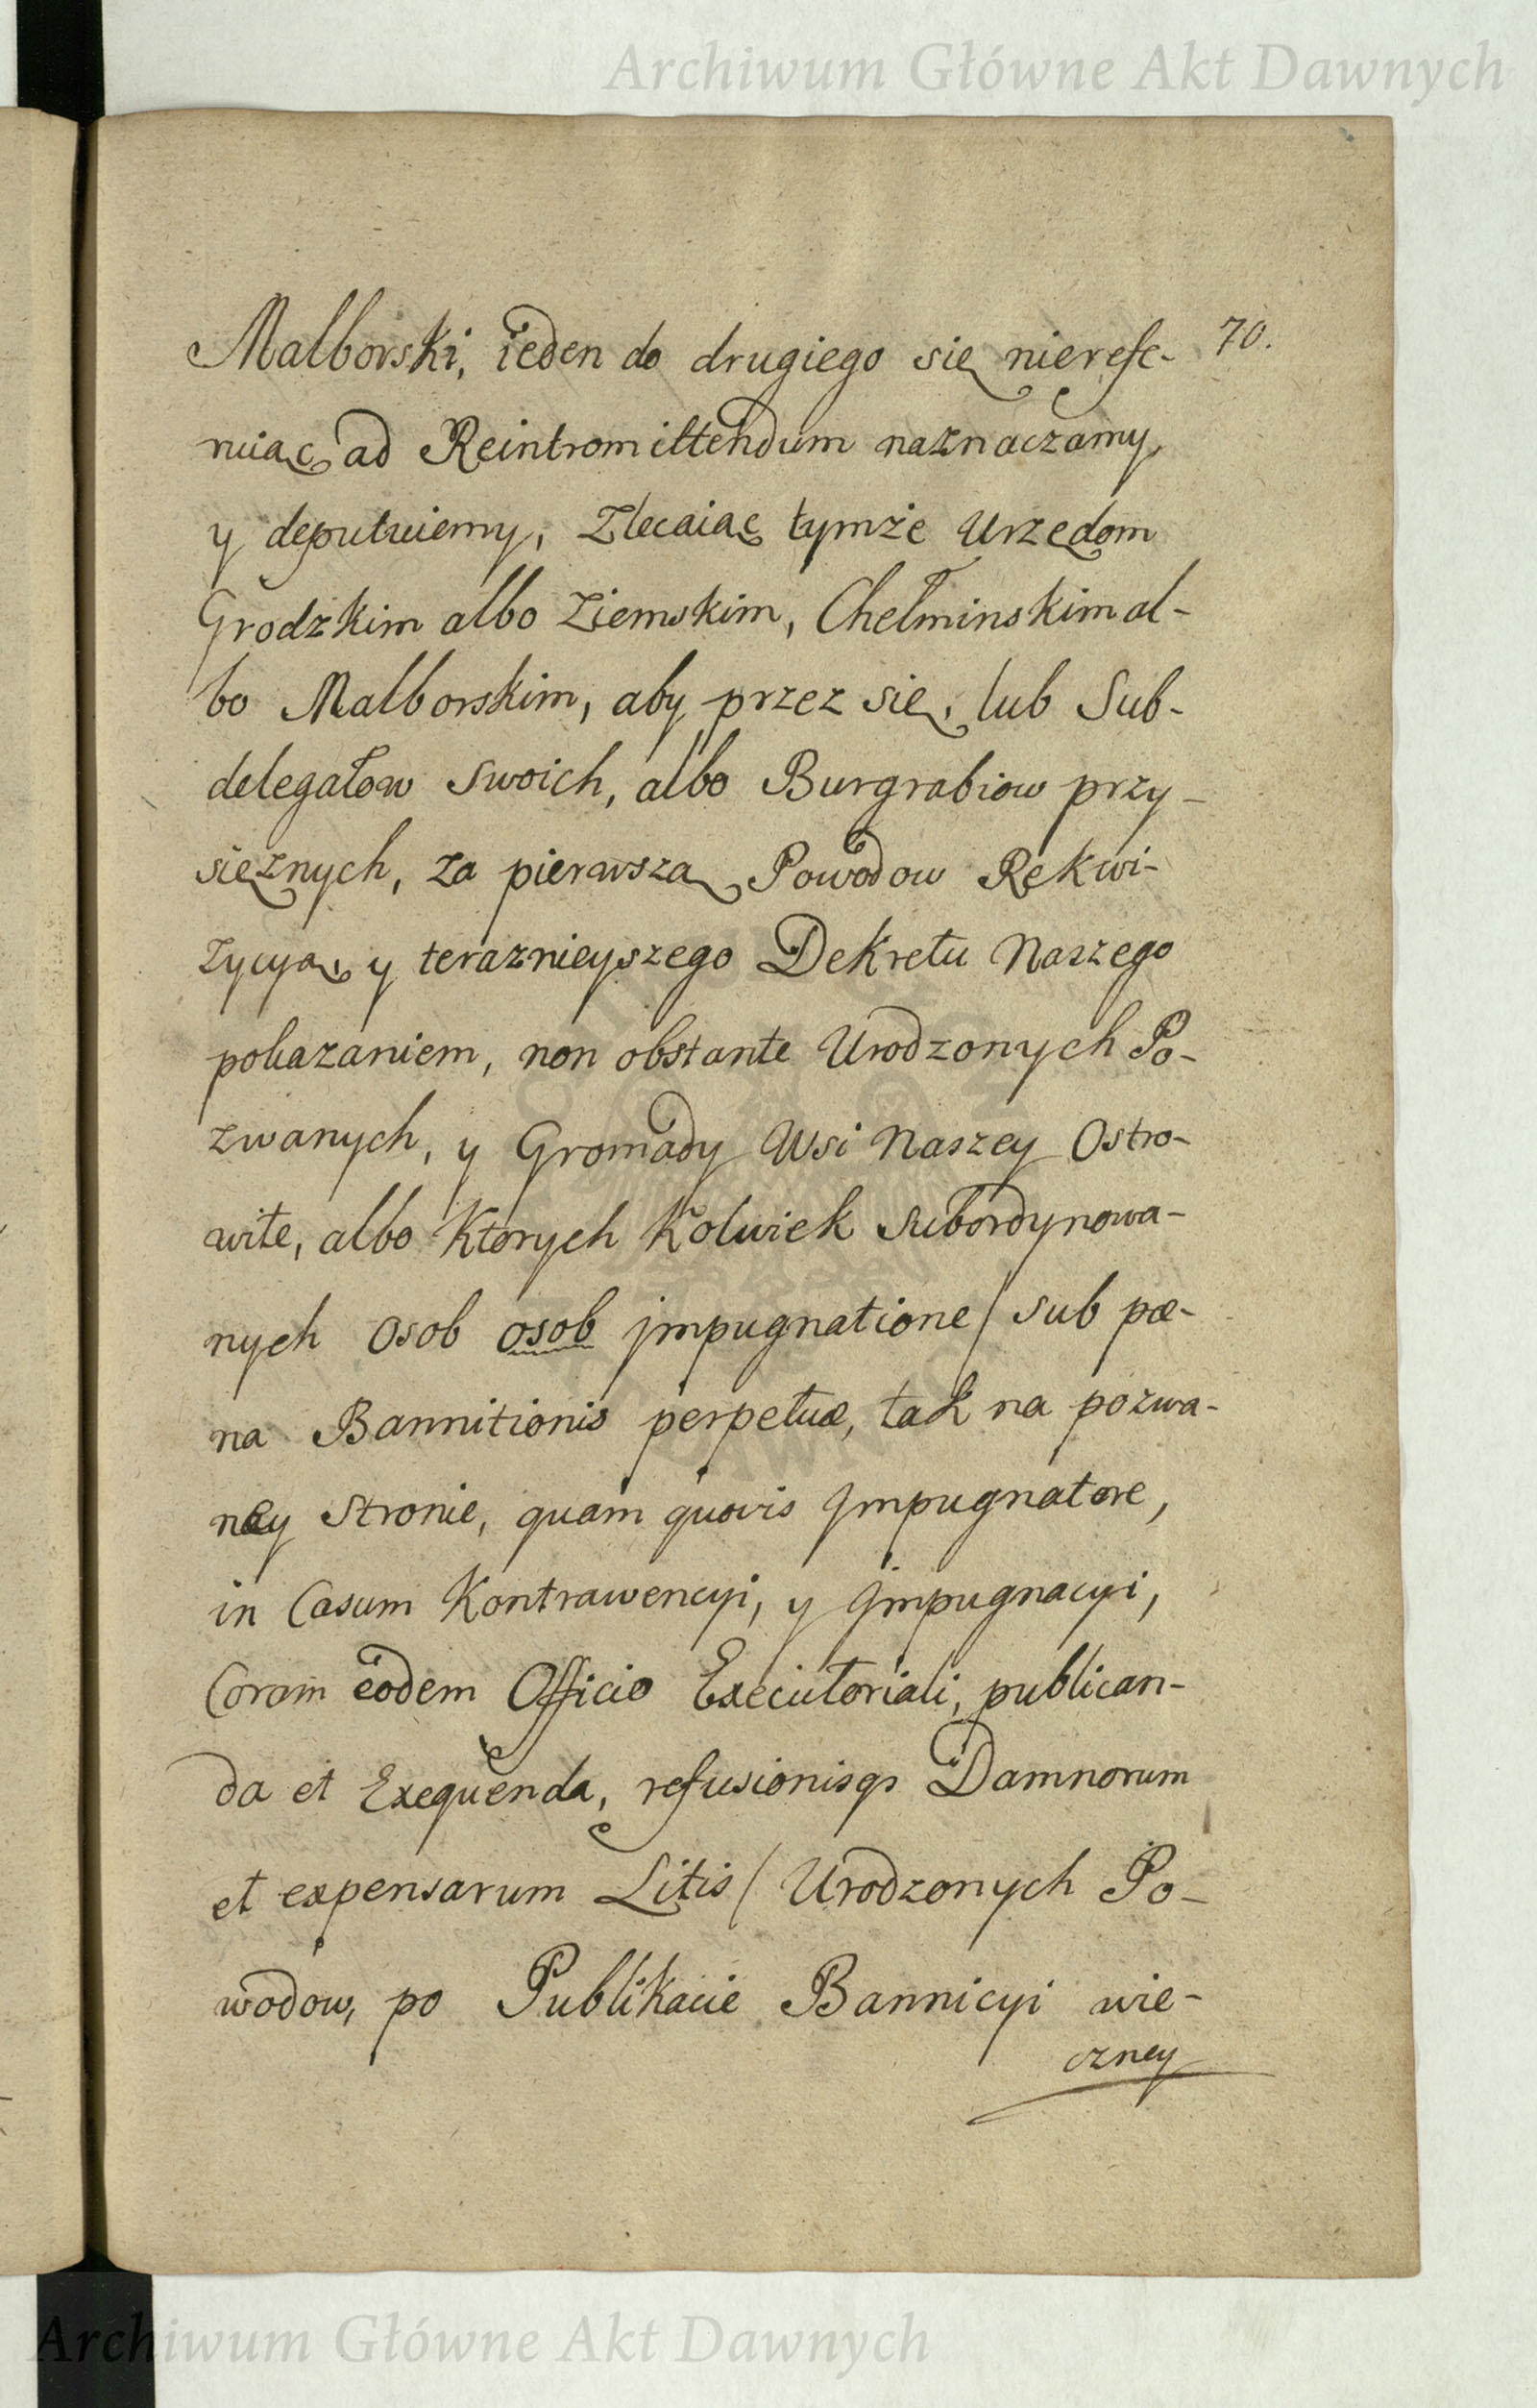 Archiwum Główne Akt Dawnych
70.
Malborski, ieden do drugiego się nierefe-
ruiąc ad Reintromittendum naznaczamy,
y deputuiemy, Zlecaiąc tymże Urzędom
Grodzkim albo Ziemskim, Chełminskim al-
bo Malborskim, aby przez się, lub Sub-
delegatow Swoich, albo Burgrabiow przy-
siężnych, za pierwszą Powodow Rekwi-
zycyą, y teraznieyszego Dekretu Naszego
pokazaniem, non obstante Urodzonych Po-
zwanych, y Gromady Wsi Naszey Ostro-
wite, albo Ktorych Kolwiek Subordynowa-
nych Osob osob jmpugnatione / sub pæ-
na Bannitionis perpetuæ, tak na pozwa-
ney Stronie, quam quovis Jmpugnatore,
in Casum Kontrawencyi, y Jmpugnacyi,
Coram eodem Officio Executoriali, publican-
da et Exequenda, refusionisqs Damnorum
et expensarum Litis / Urodzonych Po-
wodow, po Publikacie Bannicyi wie-
czney
Archiwum Główne Akt Dawnych